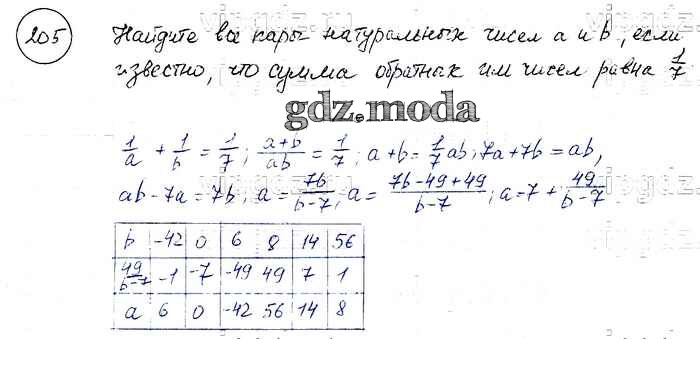 205 Найдите все пары натуральных чисел a и b, если
известно, что сумма обратных им чисел равна 1/7
gdz.moda
1/a + 1/b = 1/7; (a+b)/ab = 1/7; a+b = 1/7 ab; 7a+7b = ab,
ab-7a = 7b; a = 7b/(b-7); a = (7b-49+49)/(b-7); a = 7 + 49/(b-7)
b -42 0 6 8 14 56
49/(b-7) -1 -7 -49 49 7 1
a 6 0 -42 56 14 8